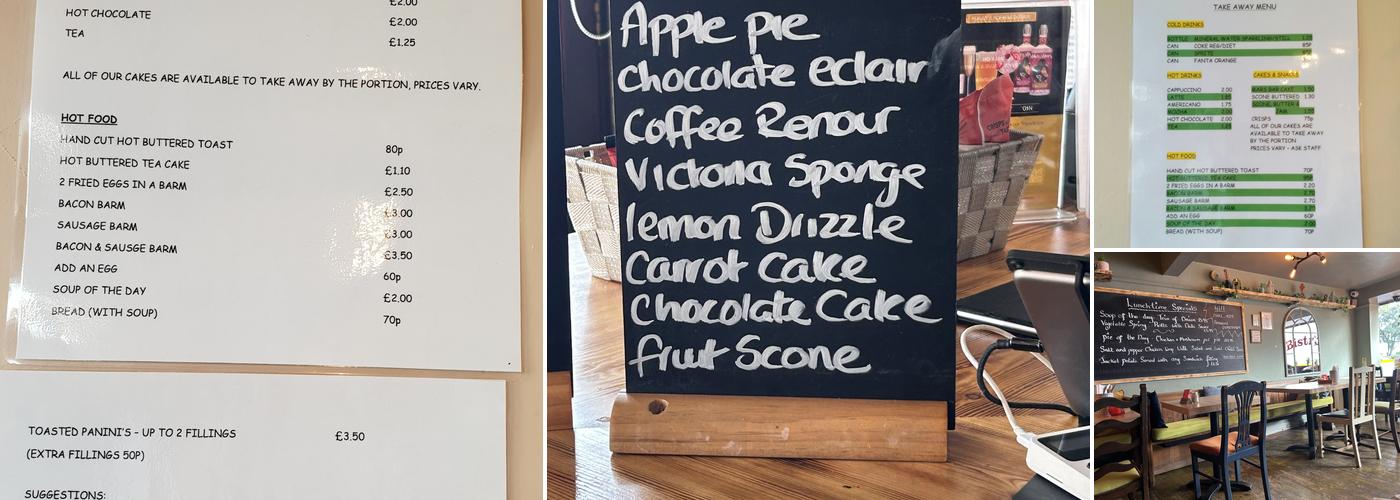 £2.00
HOT CHOCOLATE £2.00
TEA £1.25
ALL OF OUR CAKES ARE AVAILABLE TO TAKE AWAY BY THE PORTION, PRICES VARY.
HOT FOOD
HAND CUT HOT BUTTERED TOAST 80p
HOT BUTTERED TEA CAKE £1.10
2 FRIED EGGS IN A BARM £2.50
BACON BARM £3.00
SAUSAGE BARM £3.00
BACON & SAUSGE BARM £3.50
ADD AN EGG 60p
SOUP OF THE DAY £2.00
BREAD (WITH SOUP) 70p
TOASTED PANINI'S - UP TO 2 FILLINGS £3.50
(EXTRA FILLINGS 50P)
SUGGESTIONS:
Apple pie
Chocolate eclair
Coffee Renour
Victoria Sponge
lemon Drizzle
Carrot Cake
Chocolate Cake
fruit Scone
TAKE AWAY MENU
COLD DRINKS
BOTTLE MINERAL WATER SPARKLING/STILL
CAN COKE REG/DIET 85P
CAN SPRITE
CAN FANTA ORANGE
HOT DRINKS
CAPPUCCINO 2.00
LATTE 1.85
AMERICANO 1.75
MOCHA 2.00
HOT CHOCOLATE 2.00
TEA
CAKES & SNACKS
MARS BAR CAKE 1.50
SCONE BUTTERED 1.30
SCONE, BUTTER &
JAM
CRISPS 75p
ALL OF OUR CAKES ARE
AVAILABLE TO TAKE AWAY
BY THE PORTION
PRICES VARY - ASK STAFF
HOT FOOD
HAND CUT HOT BUTTERED TOAST 70P
HOT BUTTERED TEA CAKE 95P
2 FRIED EGGS IN A BARM 2.20
BACON BARM 2.70
SAUSAGE BARM 2.70
BACON & SAUSAGE BARM 3.20
ADD AN EGG 60P
SOUP OF THE DAY 2.00
BREAD (WITH SOUP) 70P
Lunchtime Specials
Soup of the day
Vegetable Spring Rolls with
Pie of the Day - Chicken & Mushroom pie
Salt and pepper Chicken
Jacket potato Served with any Sandwich filling
Bistro